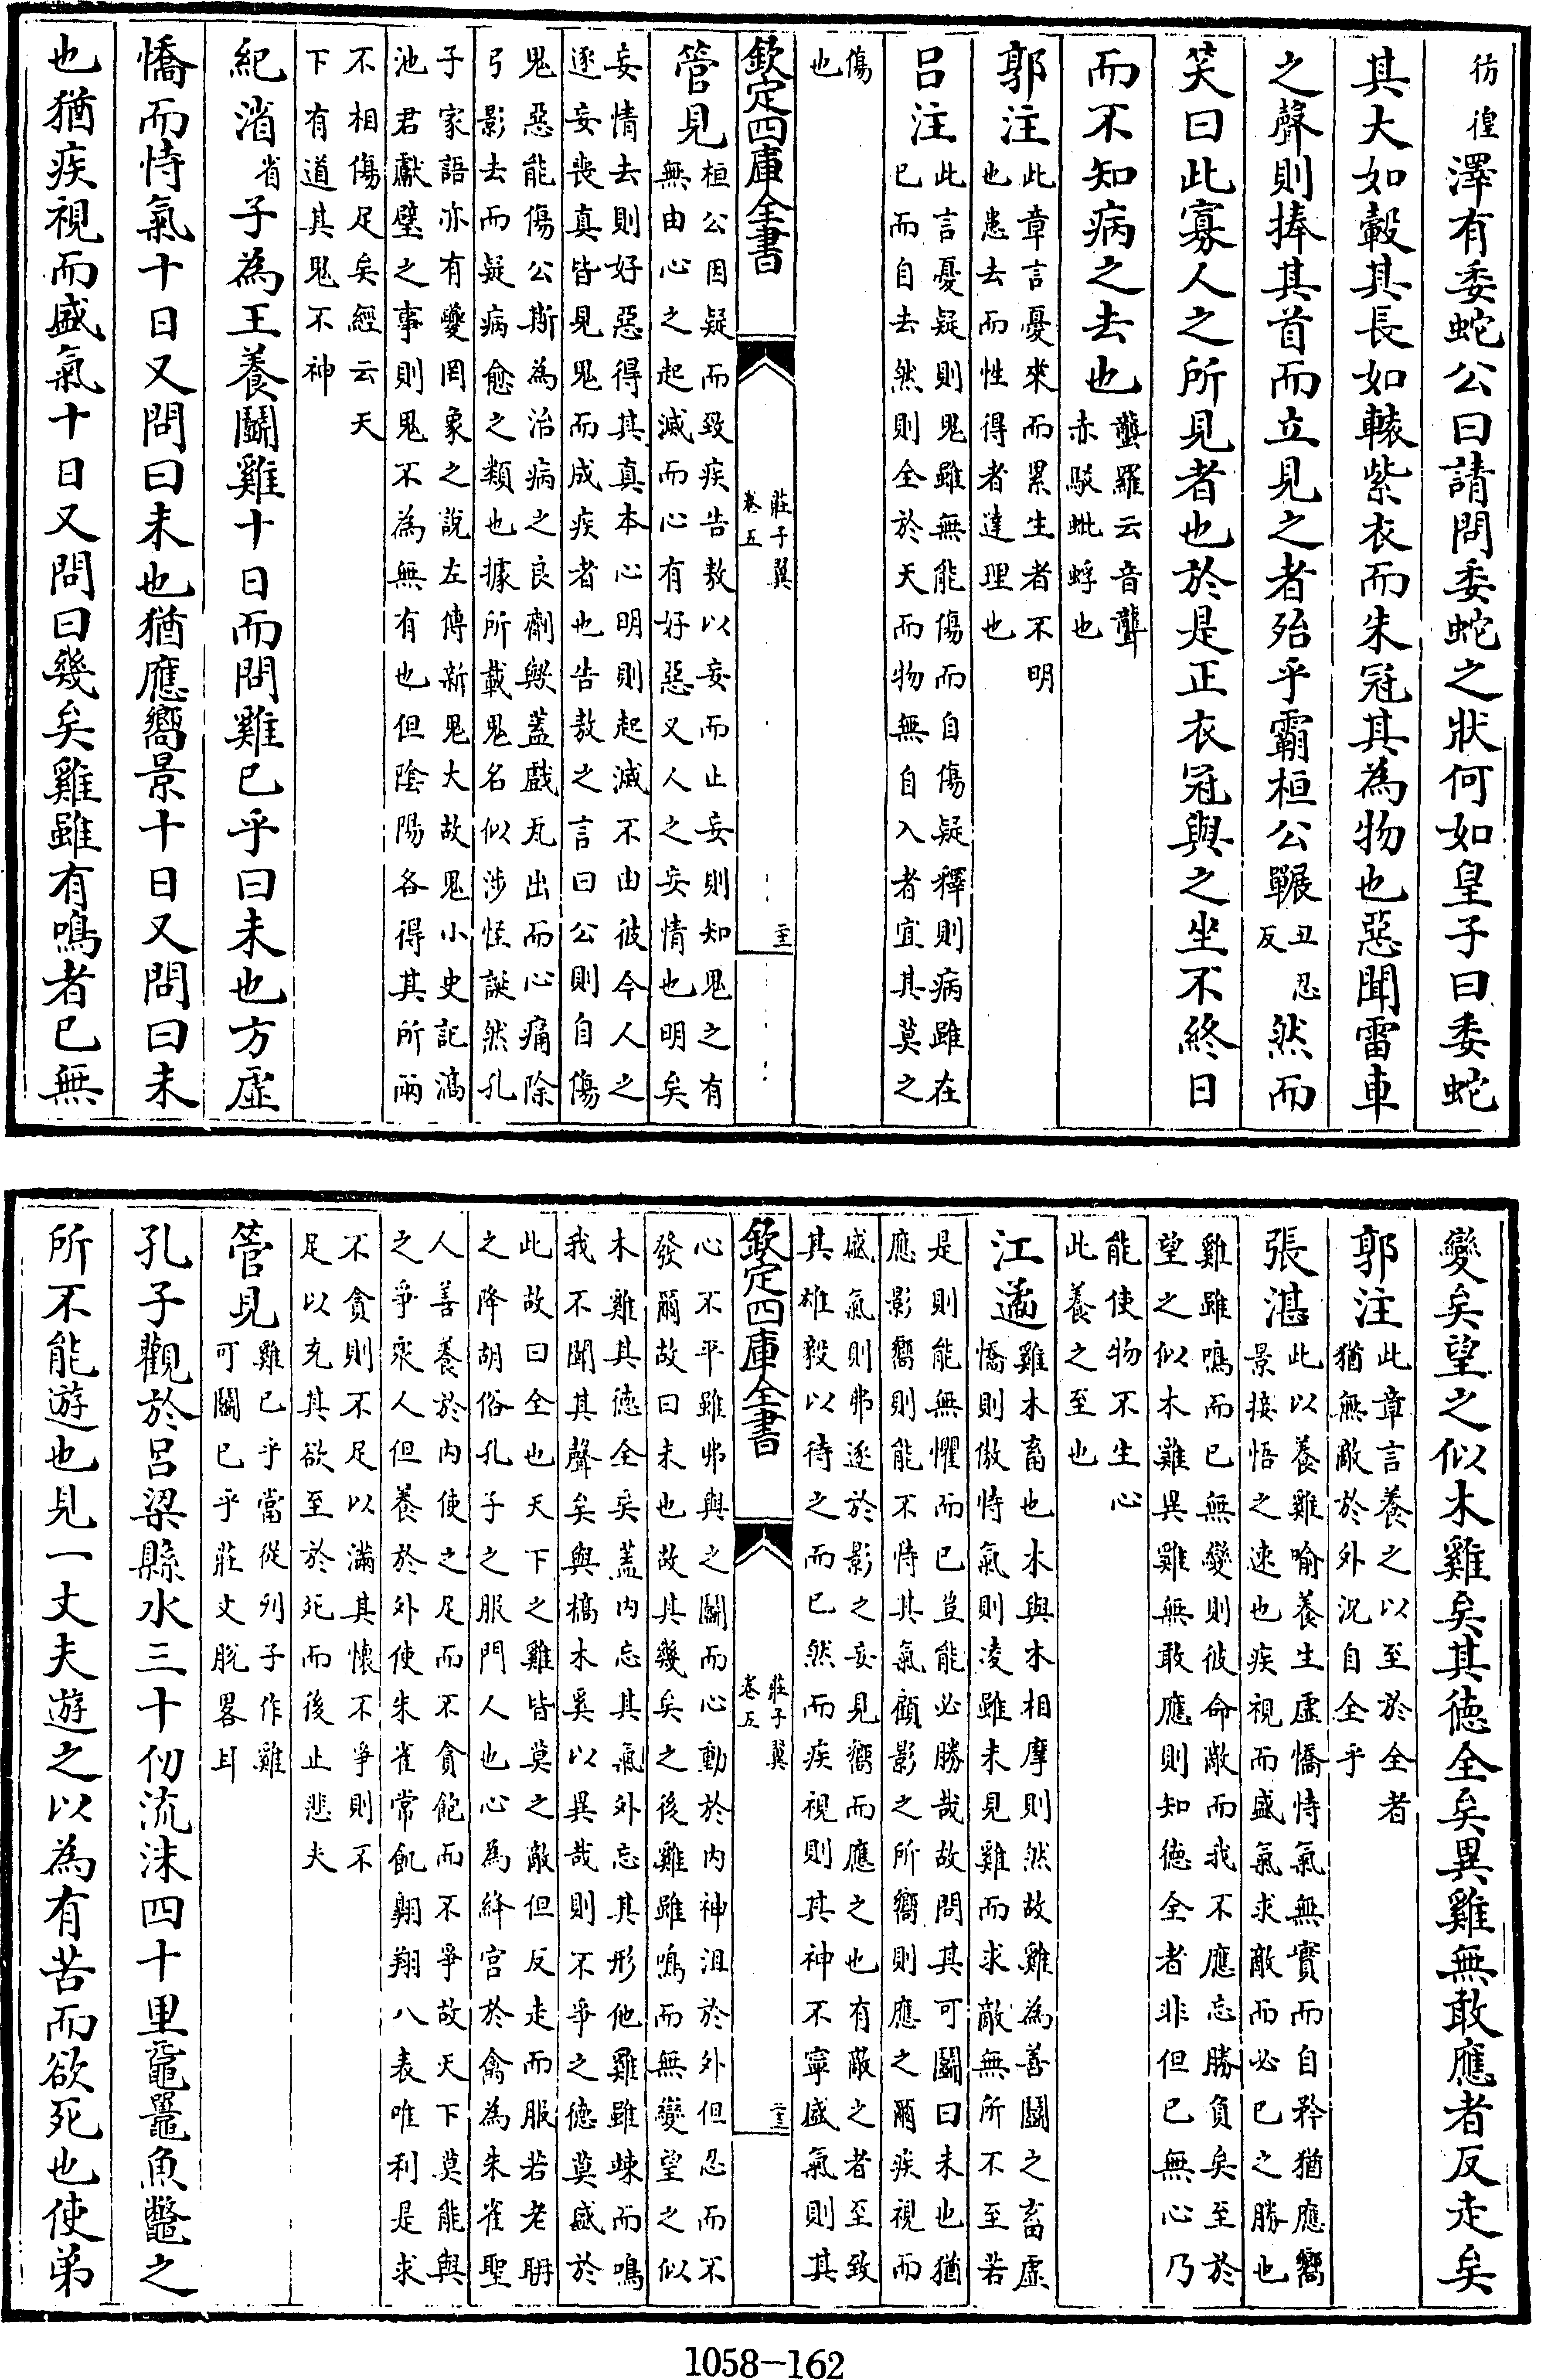 彷徨澤有委蛇公曰請問委蛇之狀何如皇子曰委蛇
其大如轂其長如轅紫衣而朱冠其為物也惡聞雷車
之聲則捧其首而立見之者殆乎霸桓公囅丑忍反然而
笑曰此寡人之所見者也於是正衣冠與之坐不終日
而不知病之去也龔羅云音聾赤駁蚍蜉也
郭注此章言憂來而累生者不明也患去而性得者達理也
呂注此言憂疑則鬼雖無能傷而自傷疑釋則病雖在已而自去然則全於天而物無自入者宜其莫之
傷也
欽定四庫全書 莊子翼 卷五 二十三
管見桓公因疑而致疾告敖以妄而止妄則知鬼之有無由心之起滅而心有好惡又人之妄情也明矣
妄情去則好惡得其真本心明則起滅不由彼今人之逐妄喪真皆見鬼而成疾者也告敖之言曰公則自傷
鬼惡能傷公斯為治病之良劑歟蓋戲瓦出而心痛除弓影去而疑病愈之類也據所載鬼名似涉怪誕然孔
子家語亦有夔罔象之說左傳新鬼大故鬼小史記滈池君獻璧之事則鬼不為無有也但陰陽各得其所兩
不相傷足矣經云天下有道其鬼不神
紀渻省子為王養鬭雞十日而問雞已乎曰未也方虛
憍而恃氣十日又問曰未也猶應嚮景十日又問曰未
也猶疾視而盛氣十日又問曰幾矣雞雖有鳴者已無
變矣望之似木雞矣其德全矣異雞無敢應者反走矣
郭注此章言養之以至於全者猶無敵於外況自全乎
張湛此以養雞喻養生虛憍恃氣無實而自矜猶應嚮景接悟之速也疾視而盛氣求敵而必已之勝也
雞雖鳴而已無變則彼命敵而我不應忘勝負矣至於望之似木雞異雞無敢應則知德全者非但已無心乃
能使物不生心此養之至也
江遹雞木畜也木與木相摩則然故雞為善鬭之畜虛憍則傲恃氣則淩雖未見雞而求敵無所不至若
是則能無懼而已豈能必勝哉故問其可鬭曰未也猶應影嚮則能不恃其氣顧影之所嚮則應之爾疾視而
盛氣則弗逐於影之妄見嚮而應之也有敵之者至致其雄毅以待之而已然而疾視則其神不寧盛氣則其
欽定四庫全書 莊子翼 卷五 二十三
心不平雖弗與之鬭而心動於內神沮於外但忍而不發爾故曰未也故其幾矣之後雞雖鳴而無變望之似
木雞其德全矣蓋內忘其氣外忘其形他雞雖竦而鳴我不聞其聲矣與槁木奚以異哉則不爭之德莫盛於
此故曰全也天下之雞皆莫之敵但反走而服若老聃之降胡俗孔子之服門人也心為絳宮於禽為朱雀聖
人善養於內使之足而不貪飽而不爭故天下莫能與之爭衆人但養於外使朱雀常飢翺翔八表唯利是求
不貪則不足以滿其懷不爭則不足以充其欲至於死而後止悲夫
管見雞已乎當從列子作雞可鬭已乎莊文脫畧耳
孔子觀於呂梁縣水三十仞流沫四十里黿鼉魚鼈之
所不能游也見一丈夫遊之以為有苦而欲死也使弟
1058-162